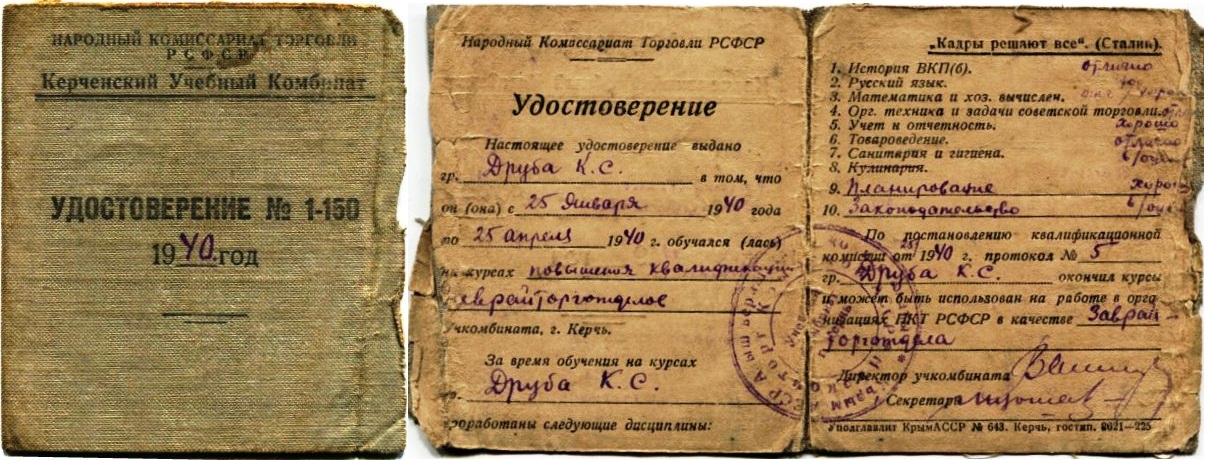 НАРОДНЫЙ КОМИССАРИАТ ТОРГОВЛИ
РСФСР
Керченский Учебный Комбинат
УДОСТОВЕРЕНИЕ № 1-150
1940 год
Народный Комиссариат Торговли РСФСР
Удостоверение
Настоящее удостоверение выдано
гр. Друба К.С. в том, что
он (она) с 25 Января 1940 года
по 25 апреля 1940 г. обучался (лась)
на курсах повышения квалификации
Учкомбината, г. Керчь.
За время обучения на курсах
гр. Друба К.С.
проработаны следующие дисциплины:
„Кадры решают все“. (Сталин).
1. История ВКП(б). отлично
2. Русский язык.
3. Математика и хоз. вычислен.
4. Орг. техника и задачи советской торговли.
5. Учет и отчетность. хорошо
6. Товароведение. отлично
7. Санитария и гигиена.
8. Кулинария.
9. Планирование хорош
10. Законодательство
По постановлению квалификационной
комиссии от 1940 г. протокол № 5
гр. Друба К.С. окончил курсы
и может быть использован на работе в орга
низациях НКТ РСФСР в качестве Заврай-
торготдела
Директор учкомбината
Секретарь
Уполглавлит КрымАССР № 643. Керчь, гостип. 8021—225